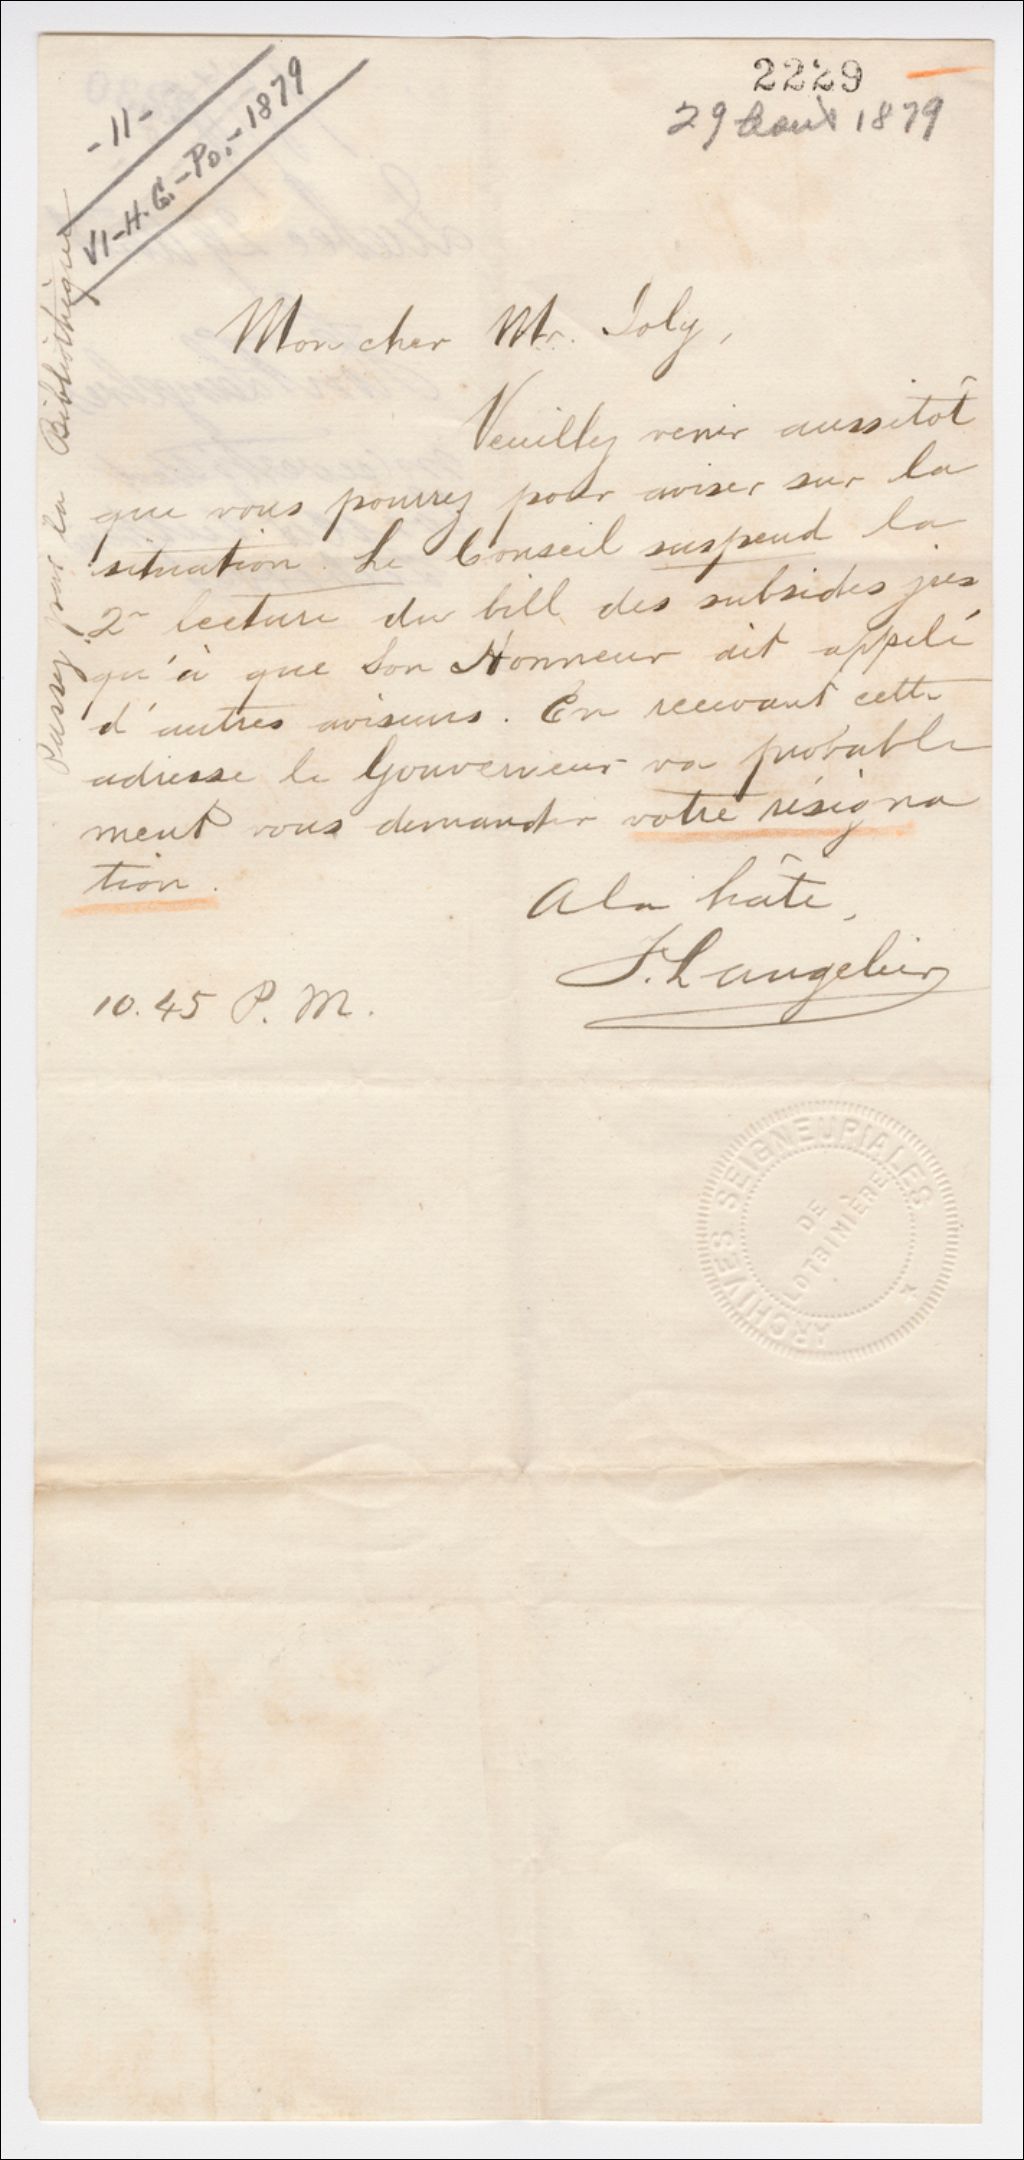 2229
29 Aout 1879
-11-
VI-H.G.-Po.-1879
Mon cher Mr. Joly,
Veuillez venir aussitôt
que vous pourrez pour aviser sur la
situation. Le Conseil suspend la
2e lecture du bill des subsides jus
qu'à que Son Honneur ait appelé
d'autres aviseurs. En recevant cette
adresse le Gouverneur va probable
ment vous demander votre résigna
tion.
A la hâte,
F. Langelier
10.45 P. M.
Passez par la Bibliothèque
ARCHIVES SEIGNEURIALES
DE
LOTBINIÈRE